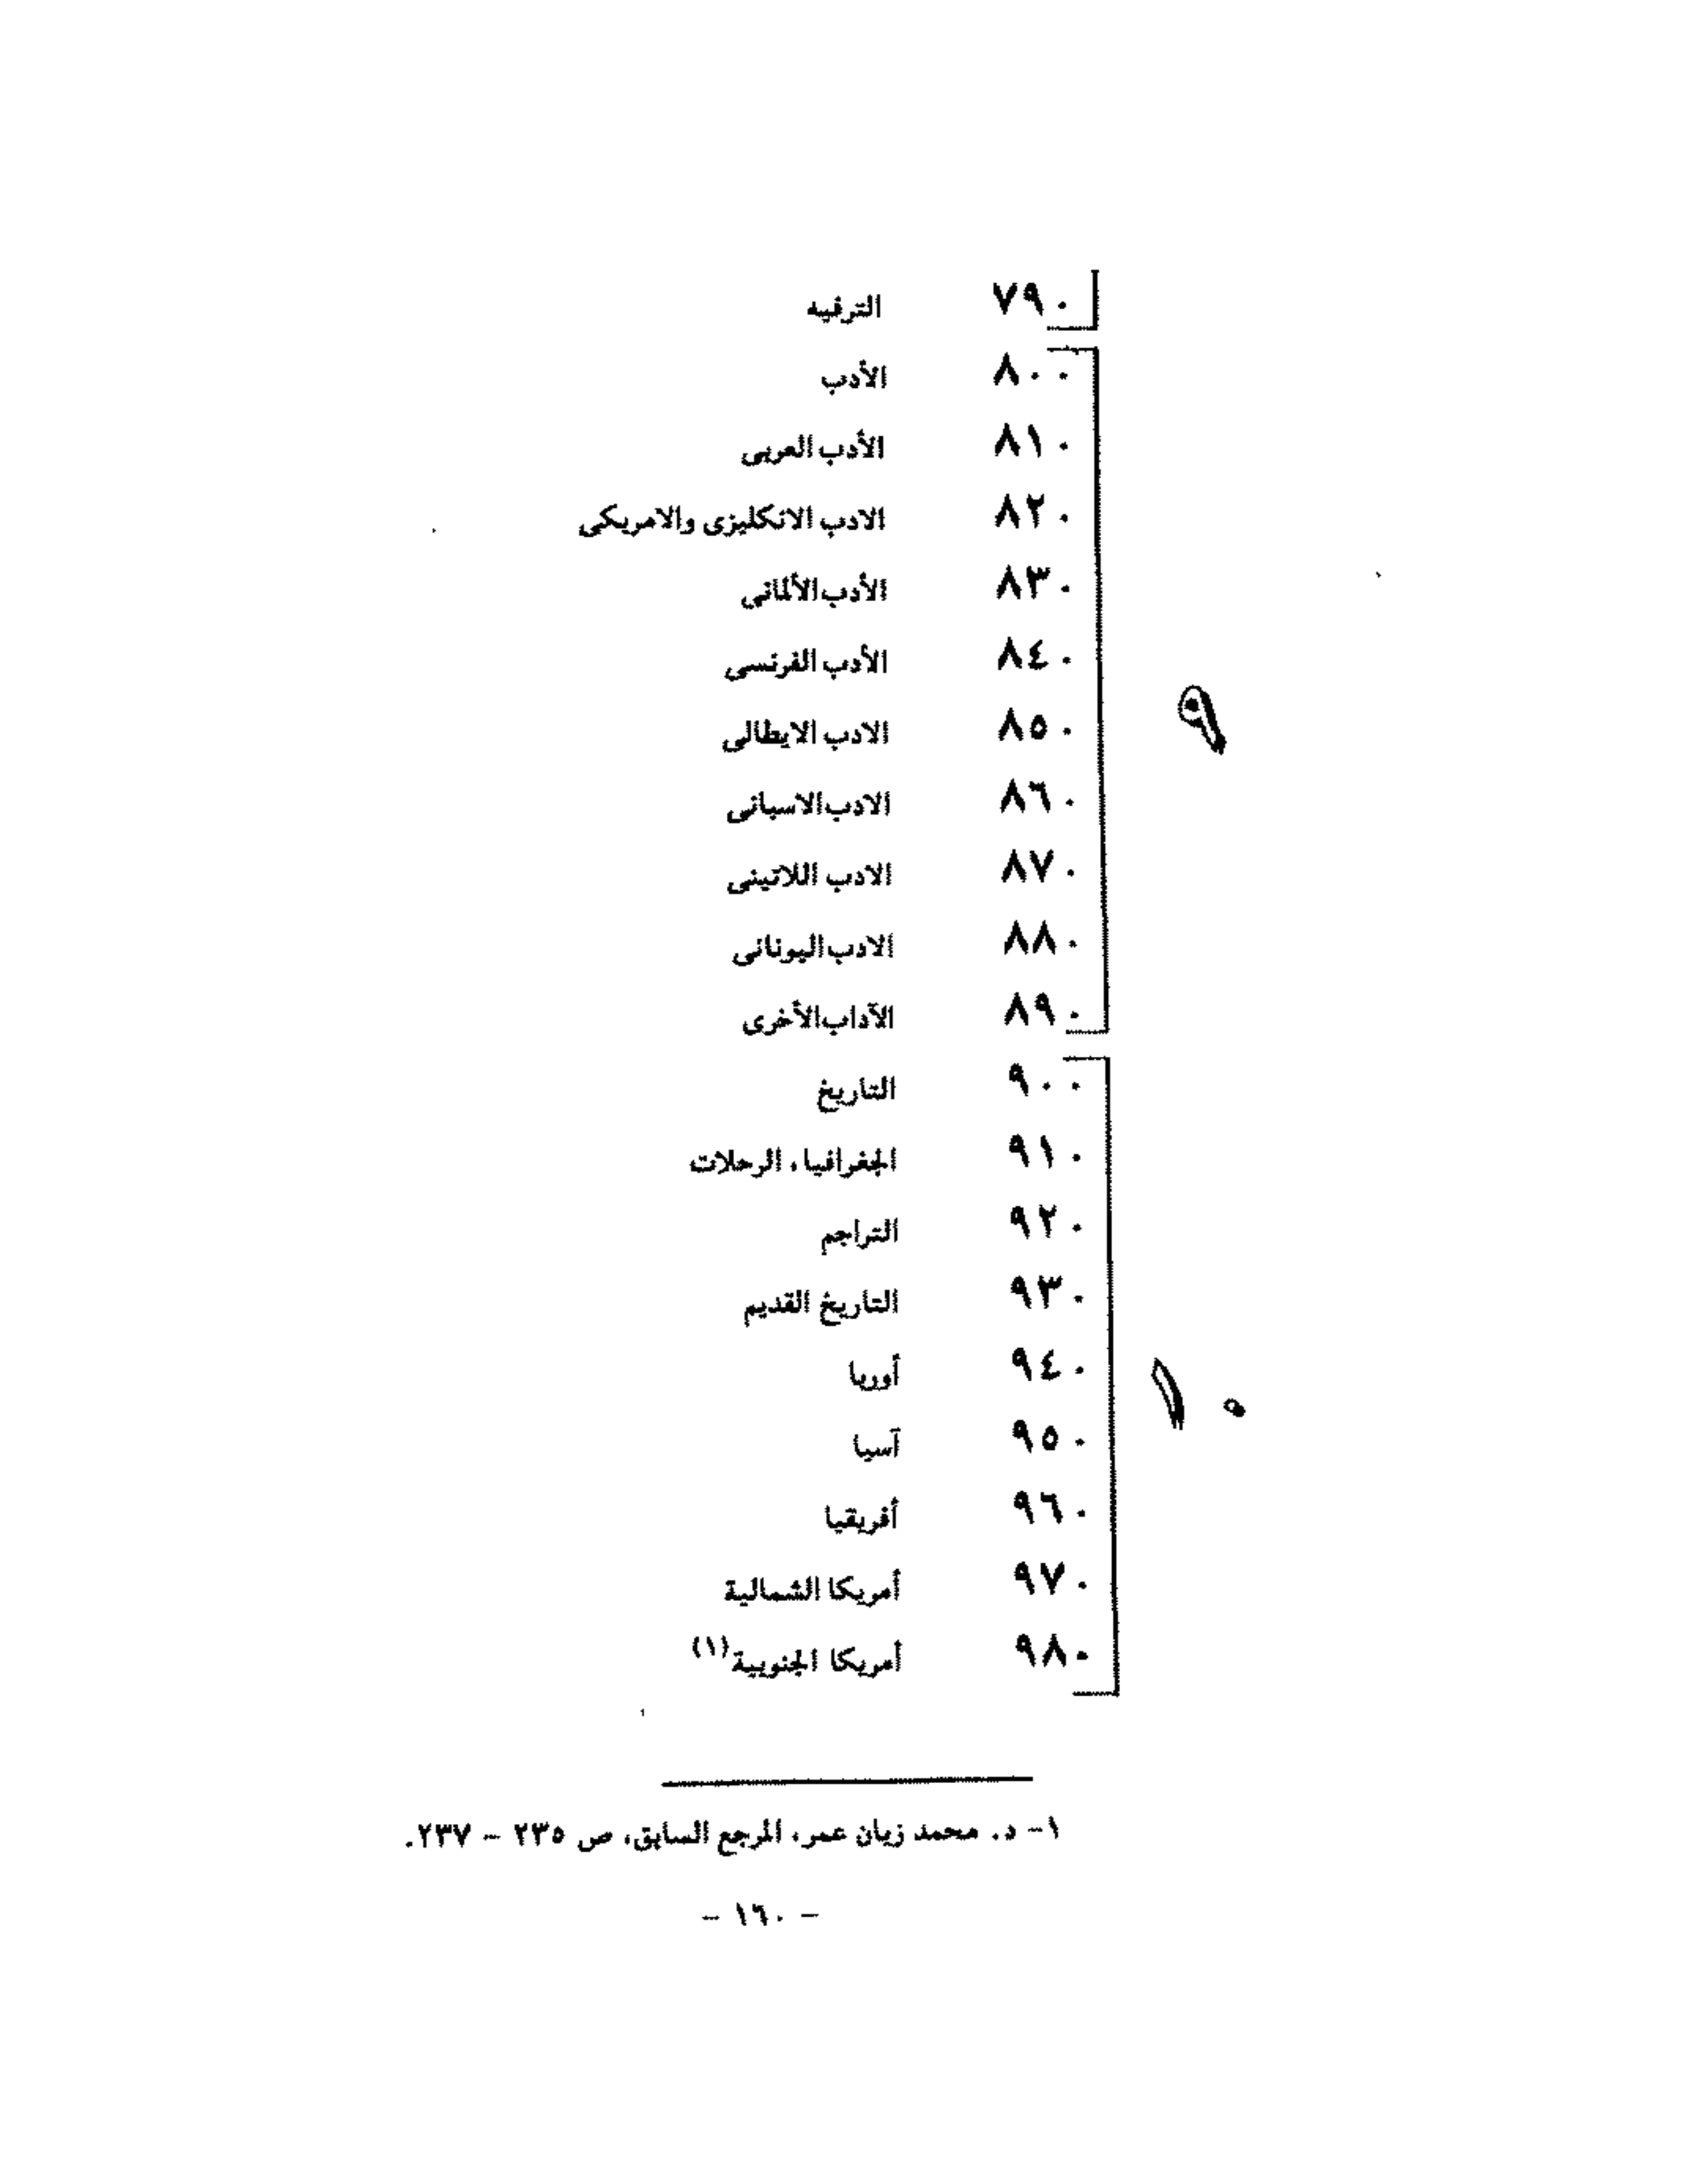 ٧٩٠ الترفيه
٨٠٠ الأدب
٨١٠ الأدب العربى
٨٢٠ الادب الانكليزى والامريكى
٨٣٠ الأدب الألمانى
٨٤٠ الأدب الفرنسى
٩
٨٥٠ الادب الايطالى
٨٦٠ الادب الاسبانى
٨٧٠ الادب اللاتينى
٨٨٠ الادب اليونانى
٨٩٠ الآداب الأخرى
٩٠٠ التاريخ
٩١٠ الجغرافيا، الرحلات
٩٢٠ التراجم
٩٣٠ التاريخ القديم
٩٤٠ أوربا
١٠
٩٥٠ آسيا
٩٦٠ أفريقيا
٩٧٠ أمريكا الشمالية
٩٨٠ أمريكا الجنوبية(١)
١- د. محمد زيان عمر، المرجع السابق، ص ٢٣٥ – ٢٣٧.
– ١٦٠ –